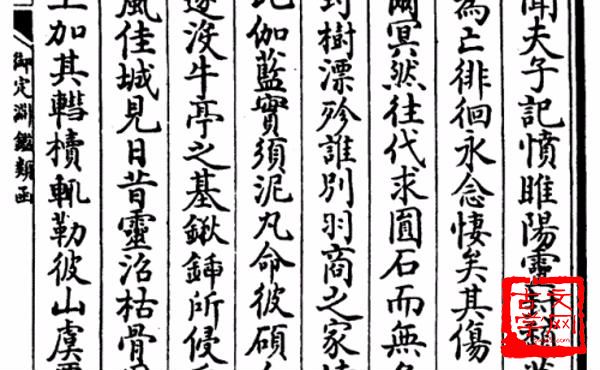 聞夫子記憤睢陽靈
為亡徘徊永念悽矣其傷
爾冥然往代求圓石而無
封樹漂殄誰別羽商之家
此伽藍實須泥凡命彼碩
遂沒牛亭之基鍬鍤所侵
風佳城見日昔靈沼枯骨
加其轊櫝軏勒彼山虞
御定淵鑑類函
古文学网